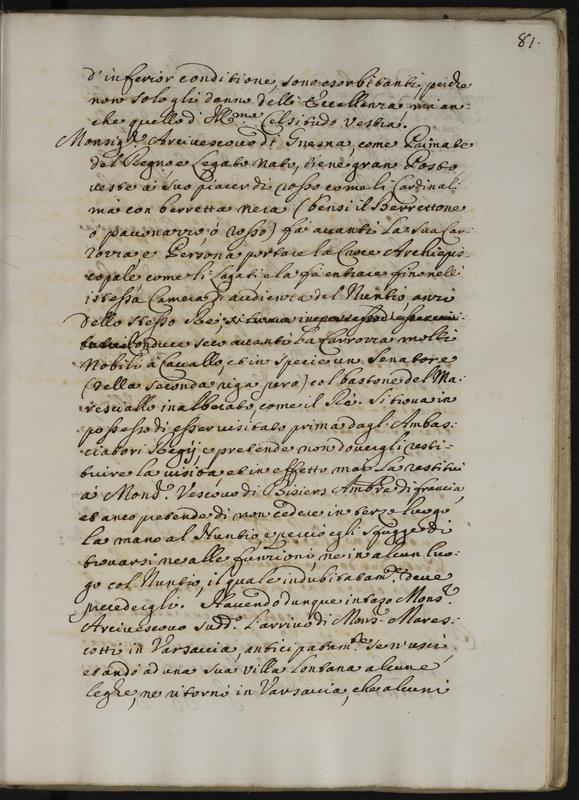 81.
d'inferior conditione, sono esorbitanti, perche
non solo gli danno dell' Eccellenza ma an-
che quello d'Ill.ma Celsitudo Vestra.
Monsig.r Arcivescovo di Gnesna, come Primate
del Regno e Legato Nato, tiene gran Posto
veste à suo piacer di rosso come li Cardinali
mà con berretta nera (bensi il Berrettone
ò pavonazzo, ò rosso) fà avanti la sua Car-
rozza, e Persona portare la Croce Archiepis-
copale come li Legati, e la fà entrare fin nelli
istessa Camera d'audienza del Nuntio, anzi
dello stesso Rè,
Conduce seco avanti la Carrozza molti
Nobili à Cavallo, et in specie un Senatore
(della seconda riga però) col bastone del Ma-
resciallo inalborato, come il Rè. Si trova in
possesso di esser visitato prima dagl' Ambas-
ciatori Regij, e pretende non dovergli resti-
tuire la visita, et in effetto mai la restitui
à Mons.r Vescovo di Bisiers Ambre di francia,
et anco pretende di non cedere in terzo luogo
la mano al Nuntio e perciò egli sfugge di
trovarsi ne alle funzioni, ne in alcun luo-
go col Nuntio, il quale indubitatam.te deve
precedergli. Havendo dunque inteso Mons.r
Arcivescovo sudd.o l'arrivo di Mons.r Mares-
cotti in Varsavia, anticipatam.te se n'uscì,
et andò ad una sua villa lontana alcune
leghe, ne ritornò in Varsavia, che alcuni